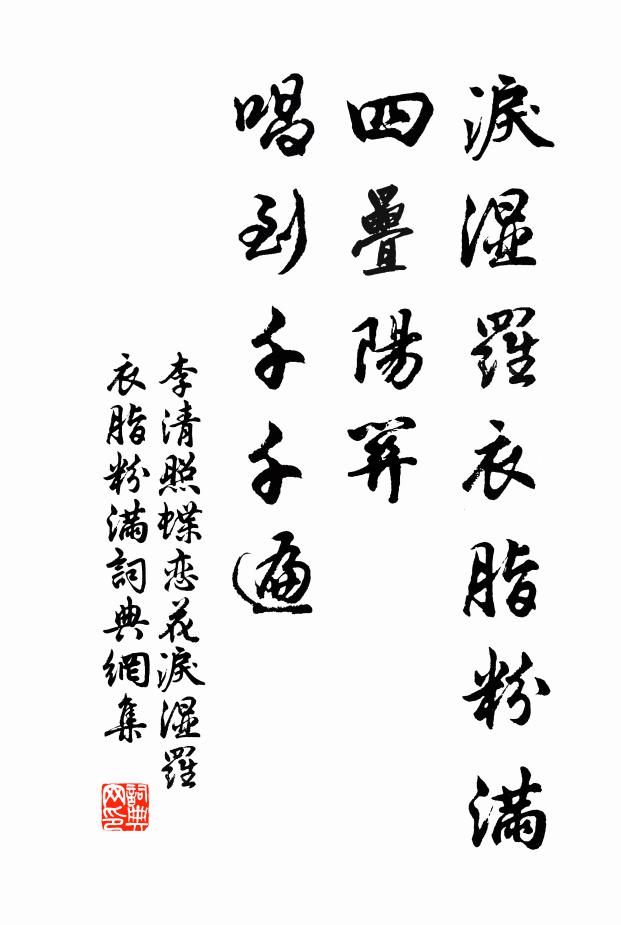 淚湿羅衣脂粉滿
四疊陽關
唱到千千遍
李清照蝶恋花淚湿羅
衣脂粉满詞典網集
詞典
网印